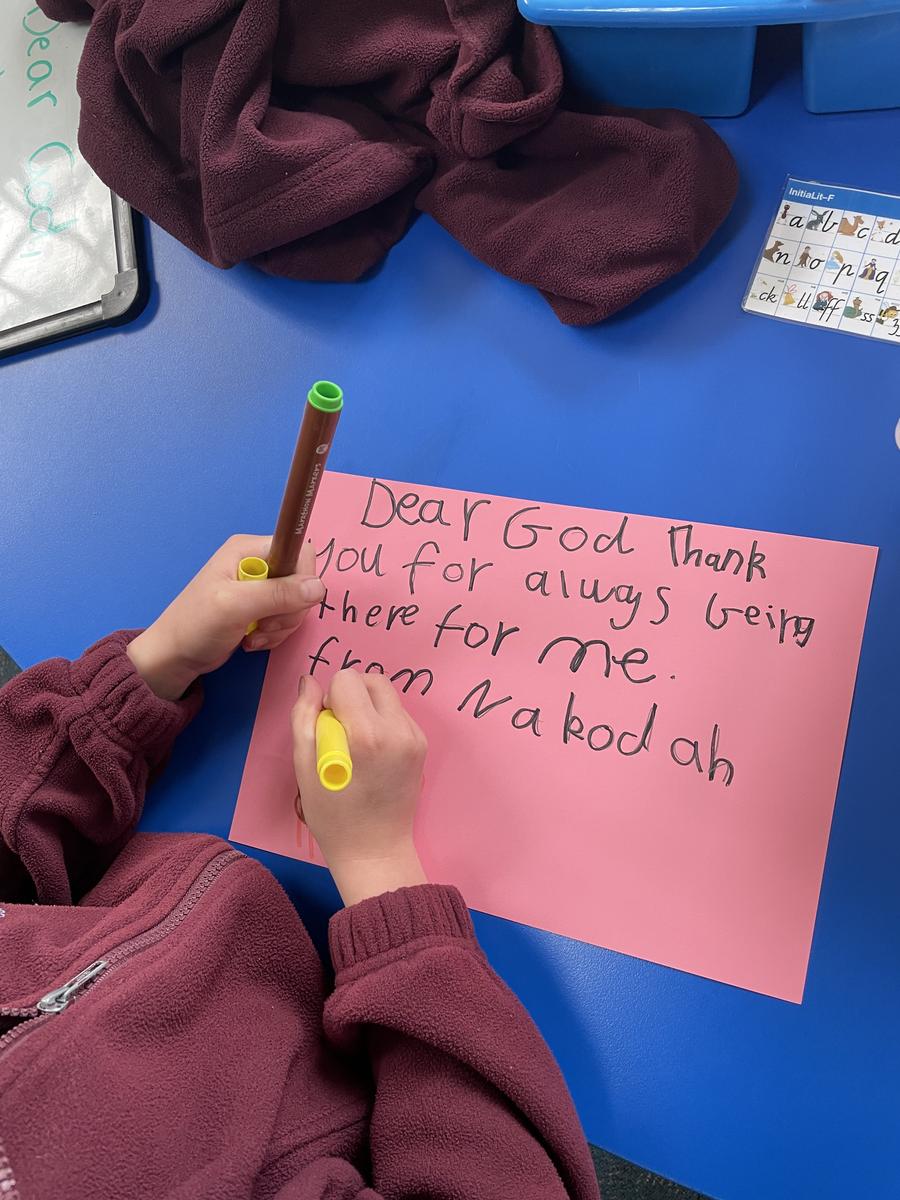 Dear God
InitiaLit–F
a b c d
n o p q
ck ll ff ss
Marathon Markers
Dear God Thank
you for always being
there for me.
from Nakodah